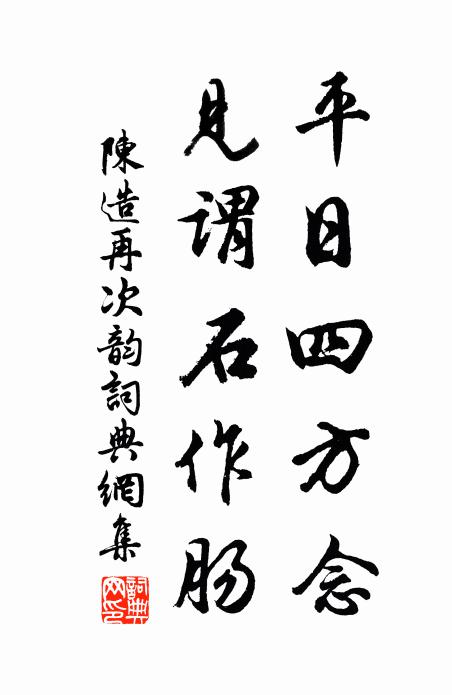 平日四方念
見謂石作肠
陳造再次韵詞典網集
詞典网印